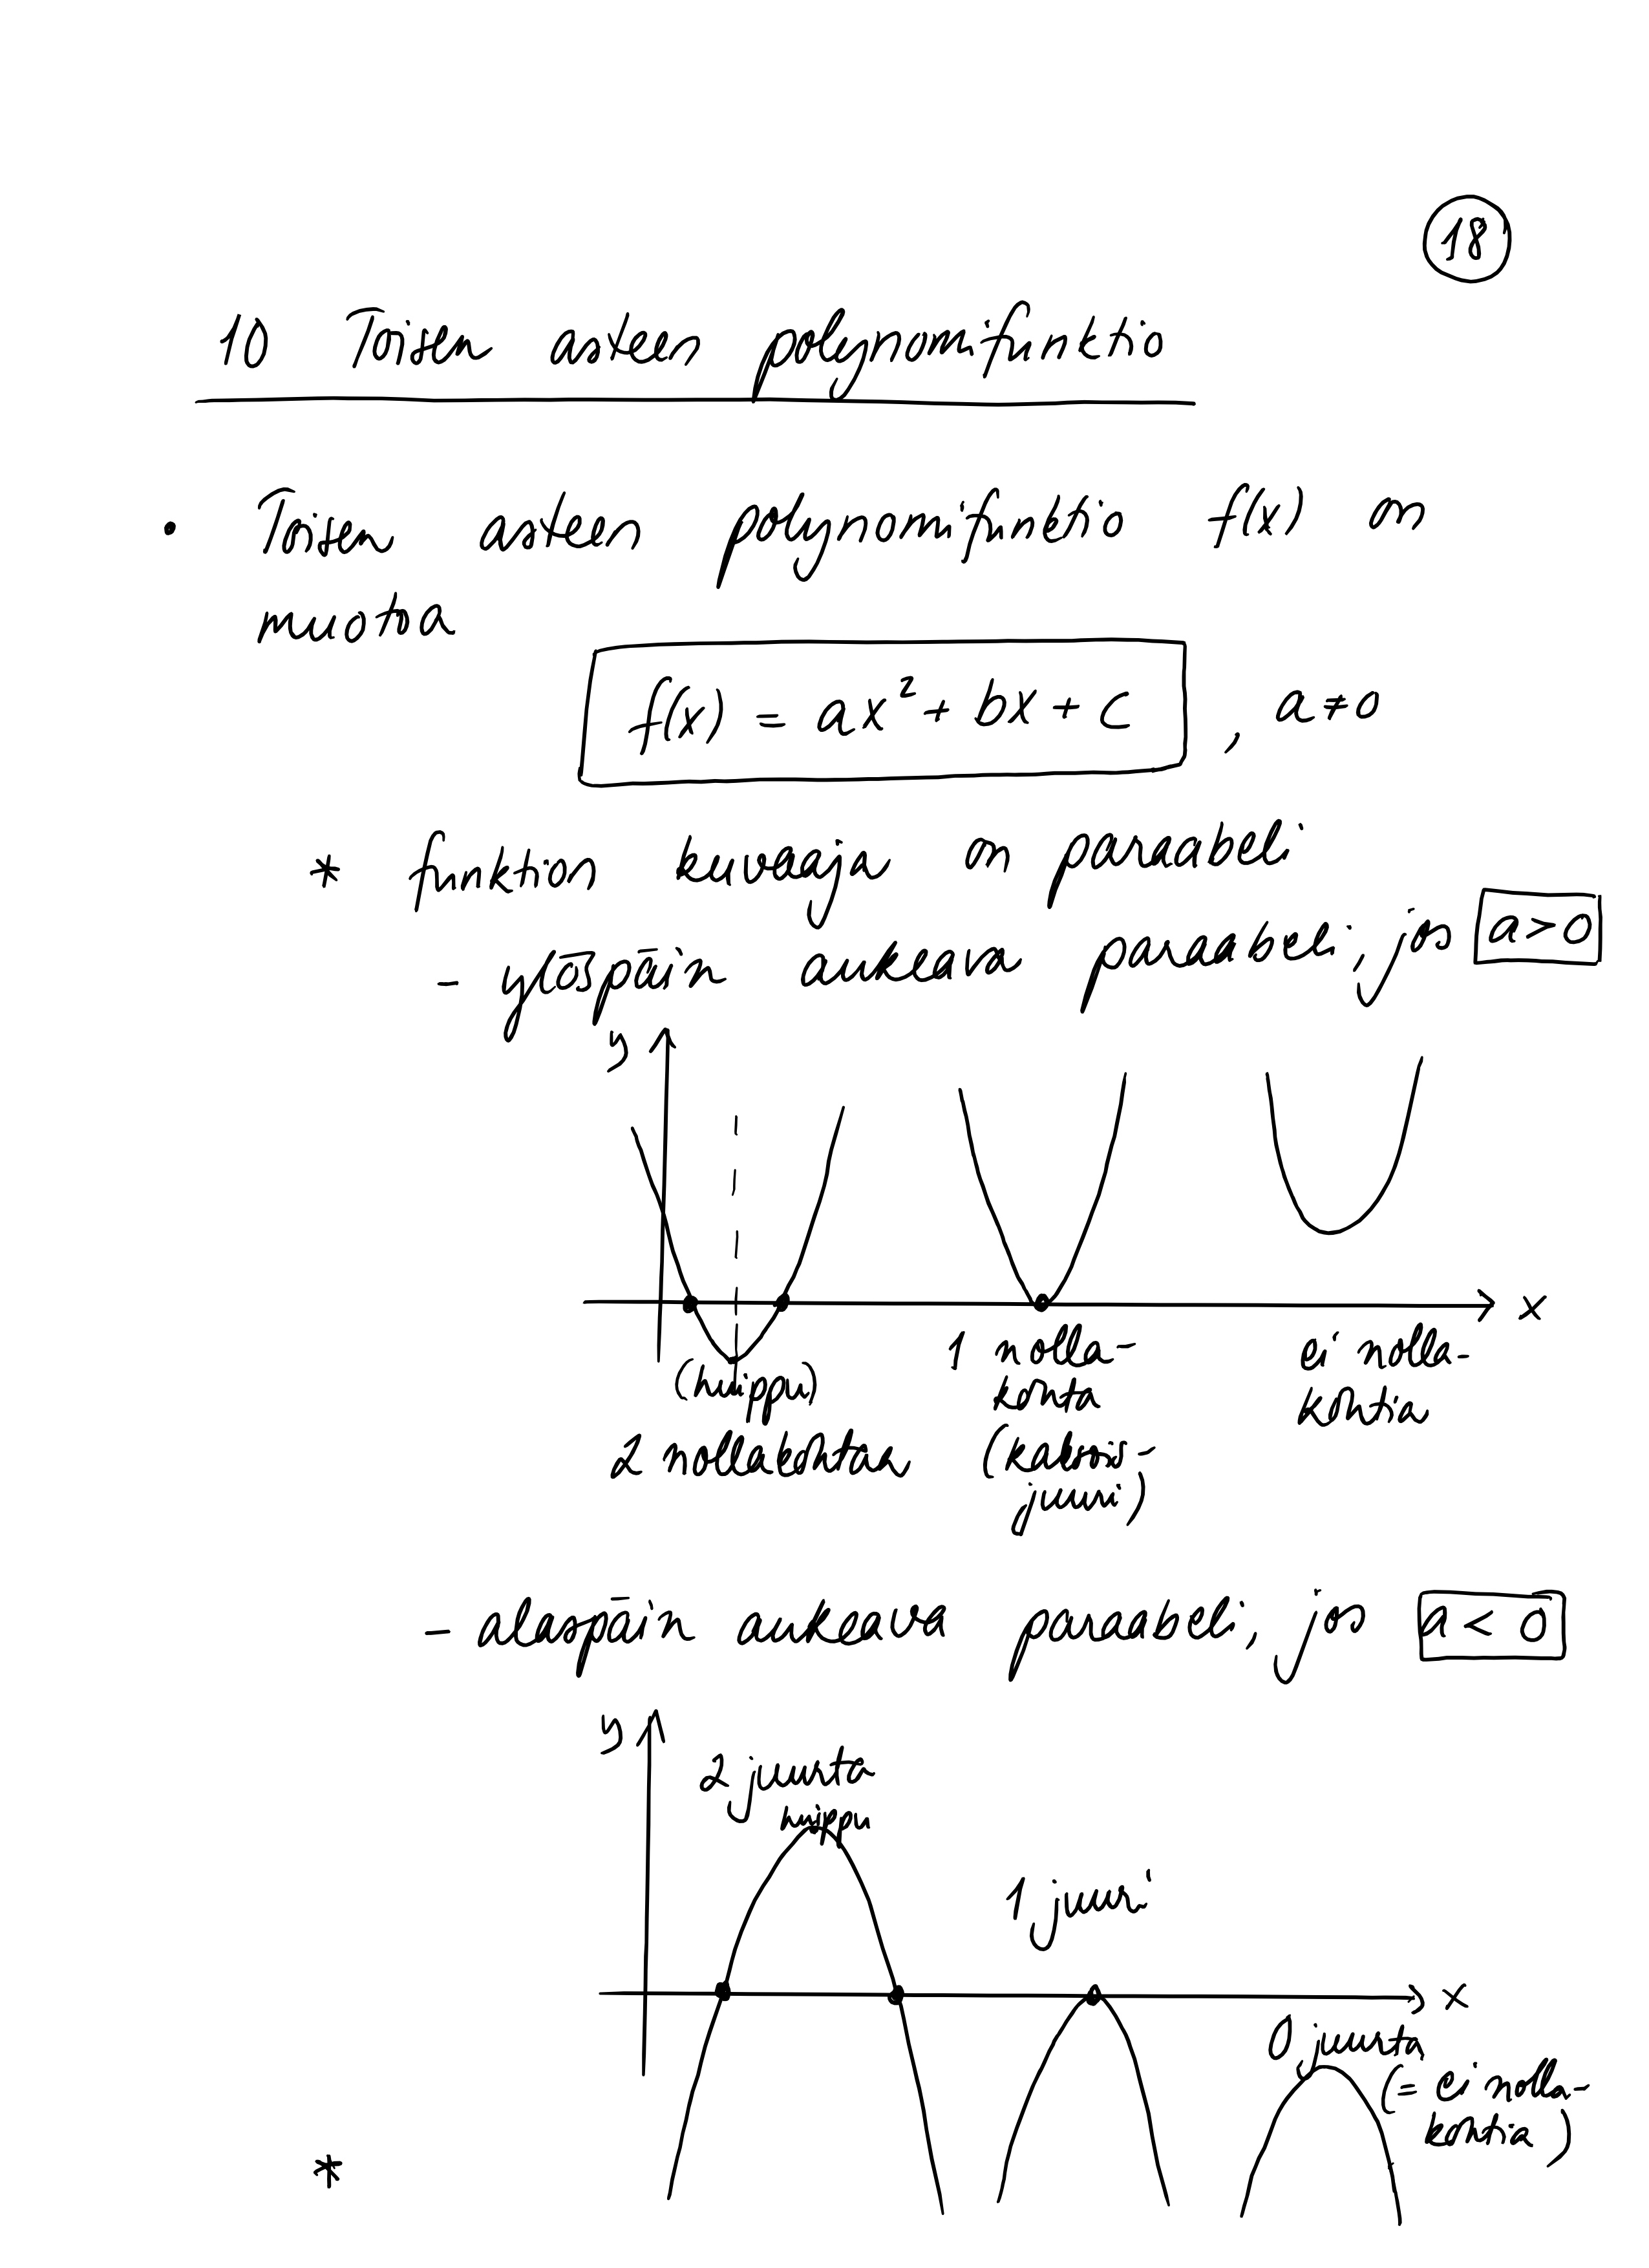 18
10 Toisen asteen polynomifunktio
• Toisen asteen polynomifunktio f(x) on
muotoa
f(x) = ax² + bx + c , a≠0
* funktion kuvaaja on paraabeli
- ylöspäin aukeava paraabeli, jos a>0
y
x
(huippu)
2 nollakohtaa
1 nolla-
kohta
(kaksois-
juuri)
ei nolla-
kohtia
- alaspäin aukeava paraabeli, jos a < 0
y
2 juurta
huippu
1 juuri
x
0 juurta
(= ei nolla-
kohtia)
*